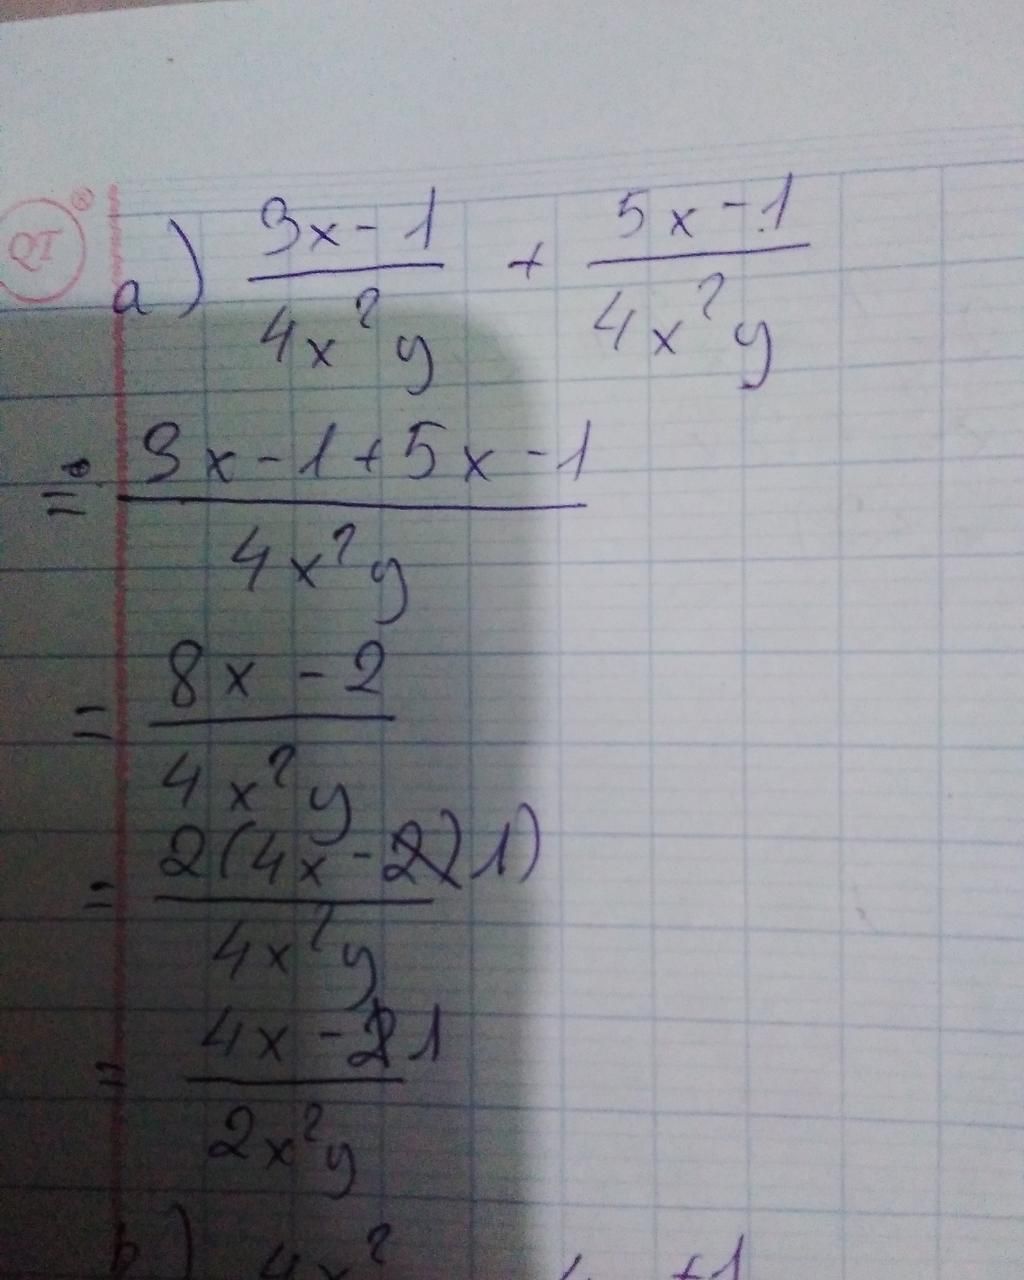 QT
a) (3x - 1)/(4x² y) + (5x - 1)/(4x² y)
= (3x - 1 + 5x - 1)/(4x² y)
= (8x - 2)/(4x² y)
= 2(4x - 1)/(4x² y)
= (4x - 1)/(2x² y)
b) 4x² +1